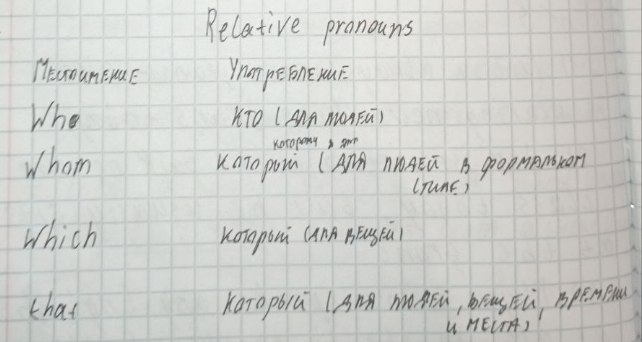 Relative pronouns
Местоимение Употребление
Who КТО (для людей)
которому
Whom Который (для людей в формальном
стиле)
Which Который (для вещей)
that Который (для людей, вещей, времени
и места)